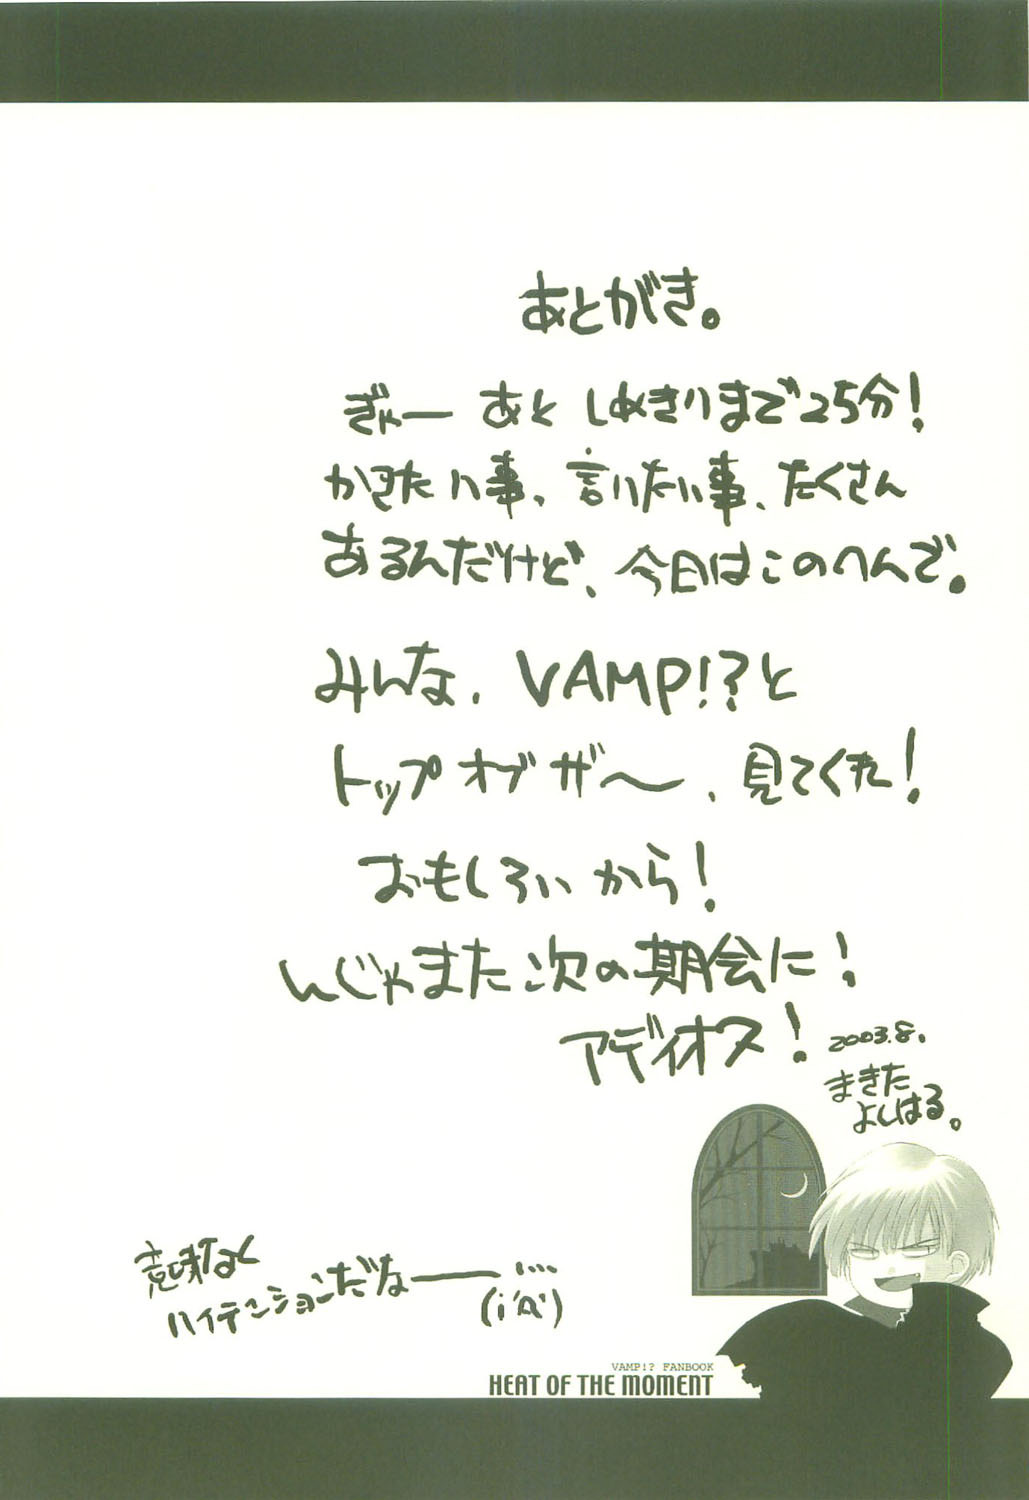 あとがき。
ぎゃーあとしめきりまで25分!
かきたい事、言いたい事、たくさん
あるんだけど、今日はこのへんで。
みんな、VAMP!?と
トップオブザ〜、見てくれ!
おもしろいから!
んじゃまた次の期会に!
アディオス!
2003.8.
まきた
よしはる。
意味なく
ハイテンションだなーー…
(;´Д`)
VAMP!? FANBOOK
HEAT OF THE MOMENT